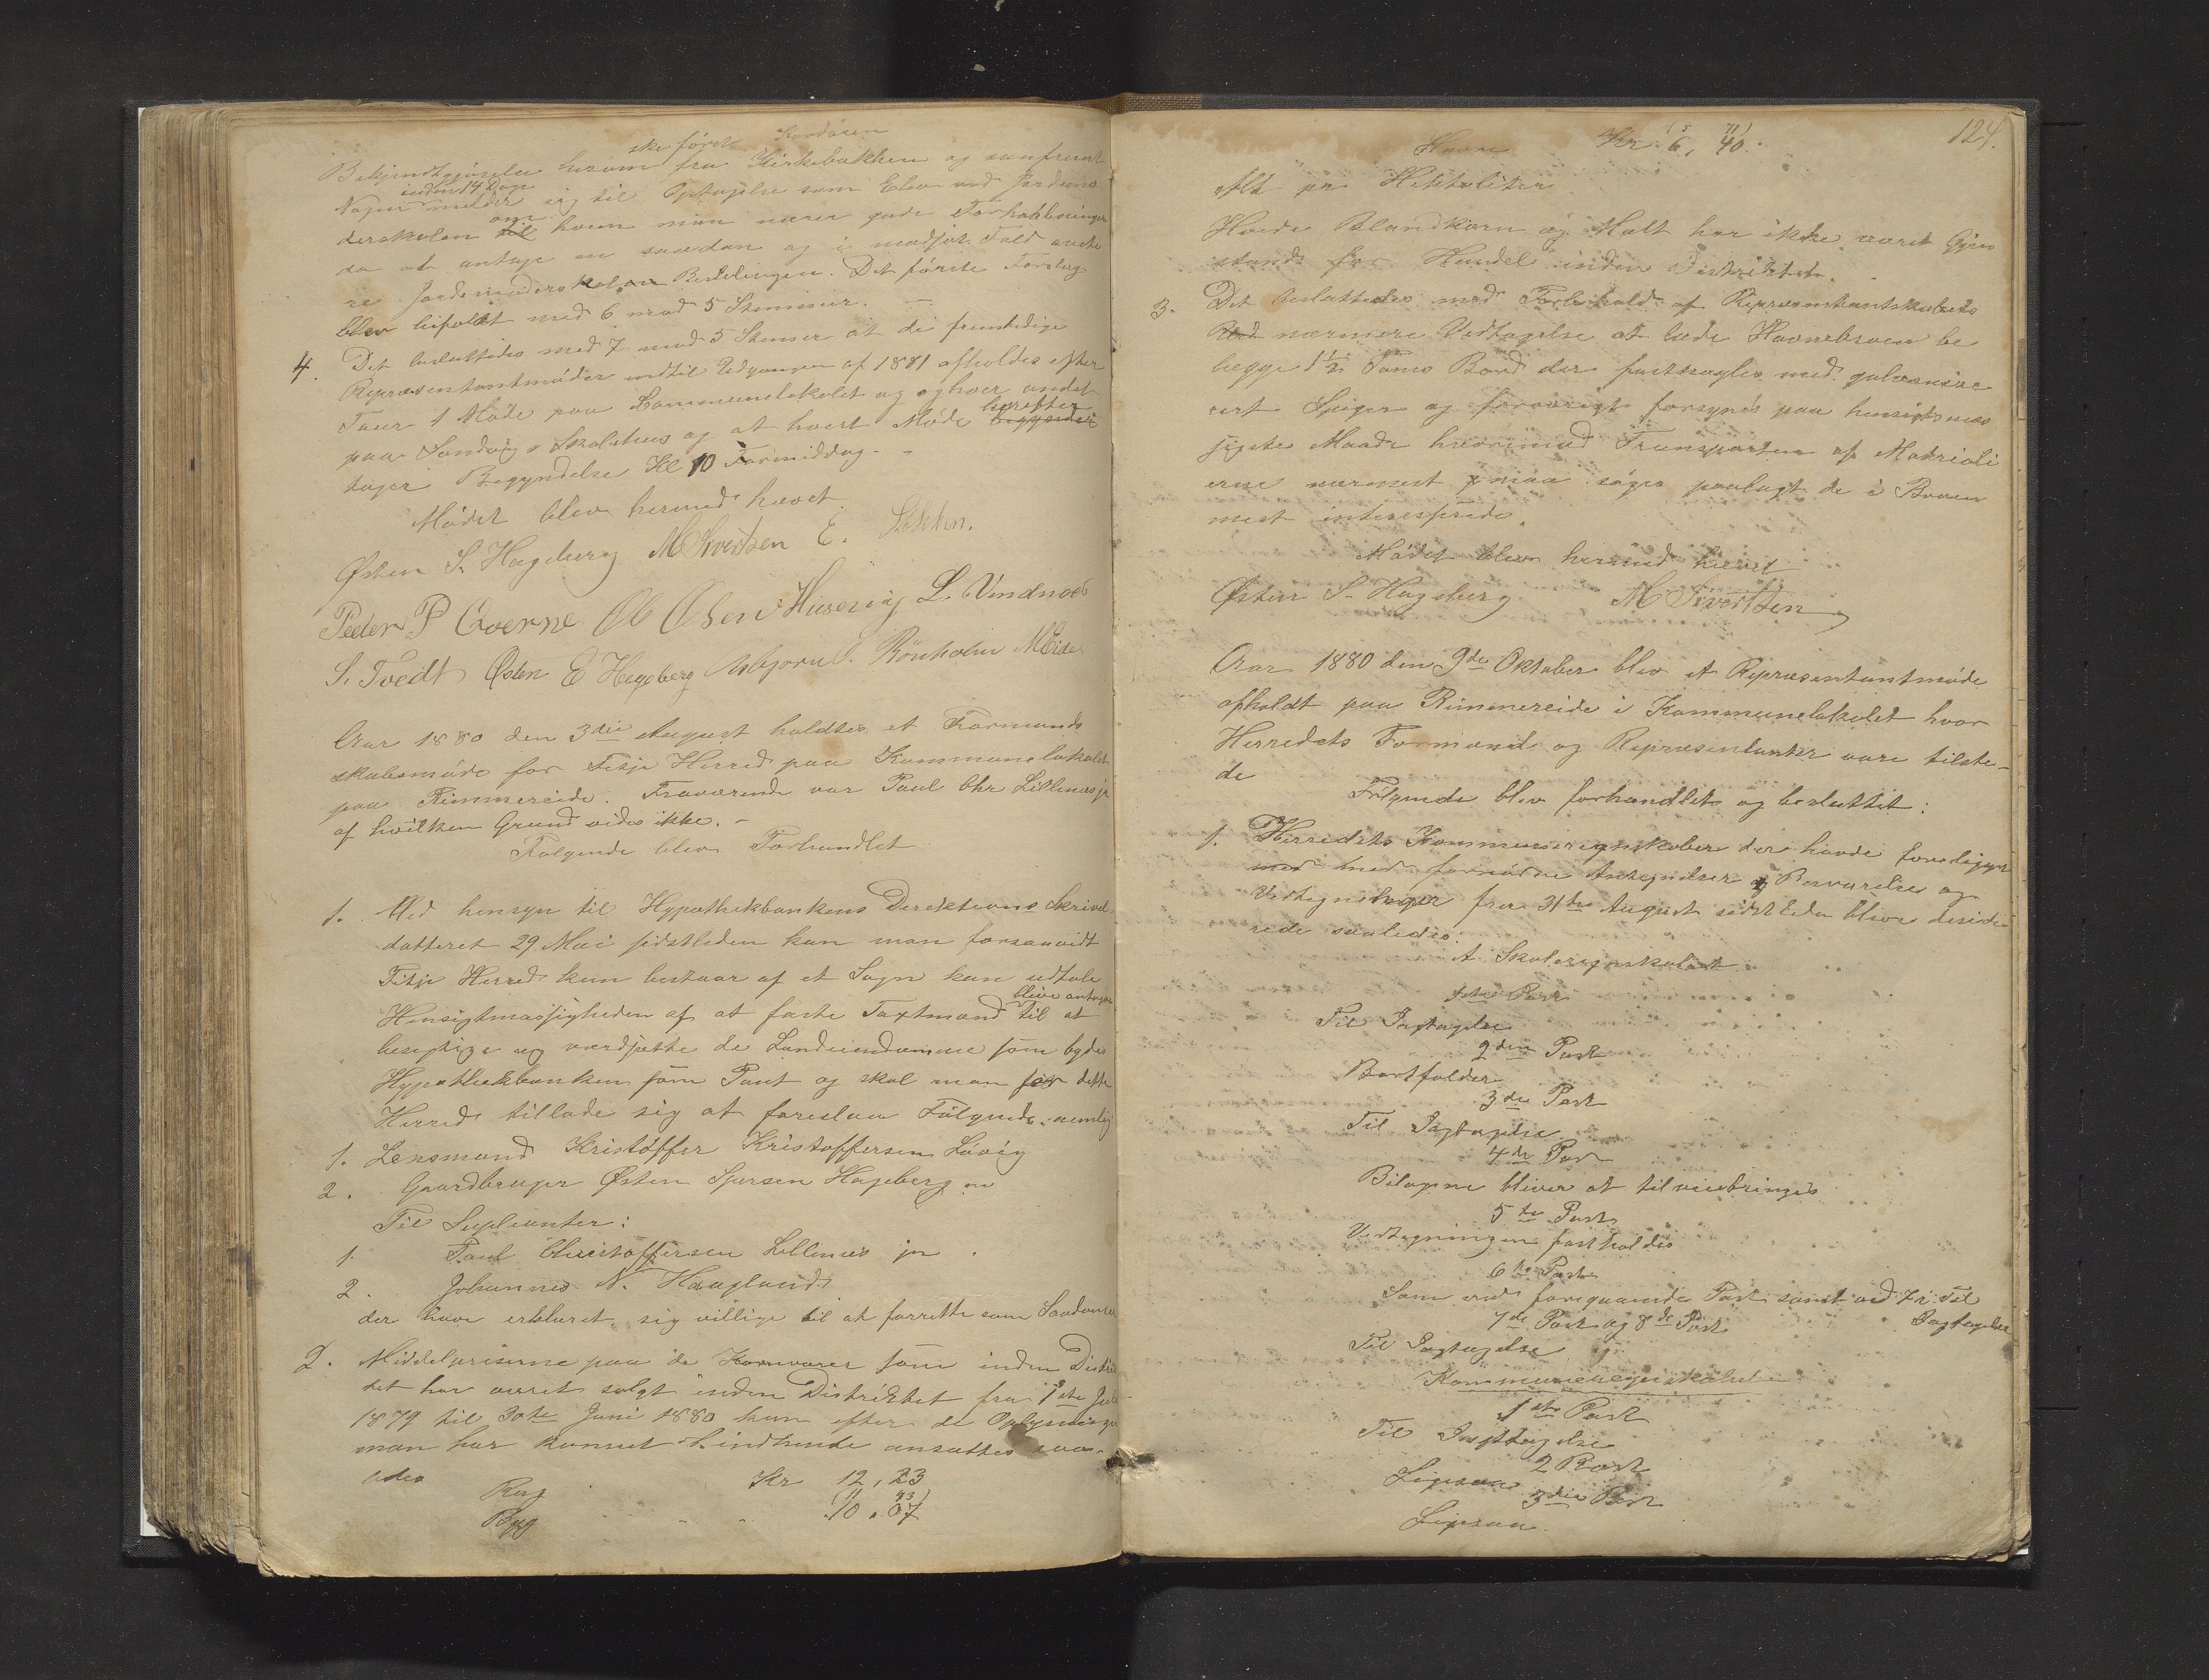 ske först
Bekjendtgjörelse herom fra Kirkebakken og saafremt
inden 14 Dage
Nogen melder sig til Optagelse som Elev ved Jordemo
derskolen til om hvem man nærer gode Forhaabninger
da at antage en saadan og i modsat Fald
blev bifaldt med 6 mod 5 Stemmer.
4. Det besluttedes med 7 mod 5 Stemmer at de fremtidige
Repræsentantmöder indtil Udgangen af 1881 afholdes efter
Tour 1 Möde paa Communelokalet og og hver andet
paa Sandvig Skolehus og at hvert Möde herefter
tager Begyndelse Kl 10 Formiddag.
Mödet blev hermed hævet.
Østen S. Hageberg M Sivertsen E.
Peder P Qverne Ol Olsen L. Vindnæs
S. Tvedt Östen E Hageberg Asbjörn
Aar 1880 den 3die August holdtes et Formands
skabsmöde for Fitje Herred paa Kommunelokalet
paa Rimmereide. Fraværende var Paul Chr Lillenæs jr
af hvilken Grund vides ikke.
Fölgende blev Forhandlet
1. Med hensyn til Hypothekbankens Direktions Skrivel
datteret 29 Mai sidstleden kan man forsaavidt
Fitje Herred kun bestaar af et Sogn kun udtale
blive antagne
Hensigtmæssigheden af at faste Taxtmænd til at
besigtige og værdsætte de Landeiendomme som bydes
Hypothekbanken som Pant og skal man for dette
Herred tillade sig at foreslaa Fölgende: nemlig
1. Lensmand Kristoffer Kristoffersen Lövig
2. Gaardbruger Østen Sjursen Hageberg
Til Suplianter:
1. Paul Christoffersen Lillenæs jn.
2. Johannes N. Haugland
der have erklæret sig villige til at forrette som Saadanne
2. Middelpriserne paa de Kornvarer som inden Distri
det har været solgt inden Distriktet fra 1ste Juli
1879 til 30te Juni 1880 kan efter de Oplysninger
man har kunnet indhente ansættes saa-
ledes
Rug Kr 12,23
(11 93)
Byg " " 10.07
124.
(5 71)
Havre Kr. 6, 40.
Alt pr Hektoliter
Hvede Blandkorn og Malt har ikke været Gjen
stand for Handel inden Distriktet.
3. Det besluttedes med Forbehold af Repræsentantskabets
Ved nærmere Vedtagelse at lade Havnebroen be
lægge 1½ Toms Bord der fastnagles med galvanise
rert Spiger og forövrigt forsynes paa hensigtsmæs
sigste Maade hvorimod Transporten af Materiali
erne nærmest maa söges paalagt de i Broen
mest interesserede.
Mödet blev hermed hævet
Østen S. Hageberg M Sivertsen
Aar 1880 den 9de Oktober blev et Repræsentantmöde
afholdt paa Rimmereide i Kommunelokalet hvor
Herredets Formænd og Repræsentanter vare tilste-
de
Fölgende blev forhandlet og besluttet:
1. Herredets Kommuneregnskaber der havde foreligget
med med fornödne Antegnelser og Besvarelser og
Vedtegninger fra 31te August sidstleden bleve deside
rede saaledes:
A Skoleregnskabet
1ste Post
Til Iagtagelse
2den Post
Bortfalder
3die Post
Til Iagtagelse
4de Post
Bilagene bliver at tilveiebringes
5te Post
Vedtegningen fastholdes
6te Post
Som ved foregaaende Post samt ved 7i Til
Iagtagelse
7de Post og 8de Post
Til Iagtagelse
Kommuneregnskabet
1ste Post
Til Iagttagelse
2 Post
Ligesaa
3die Post
Ligesaa.